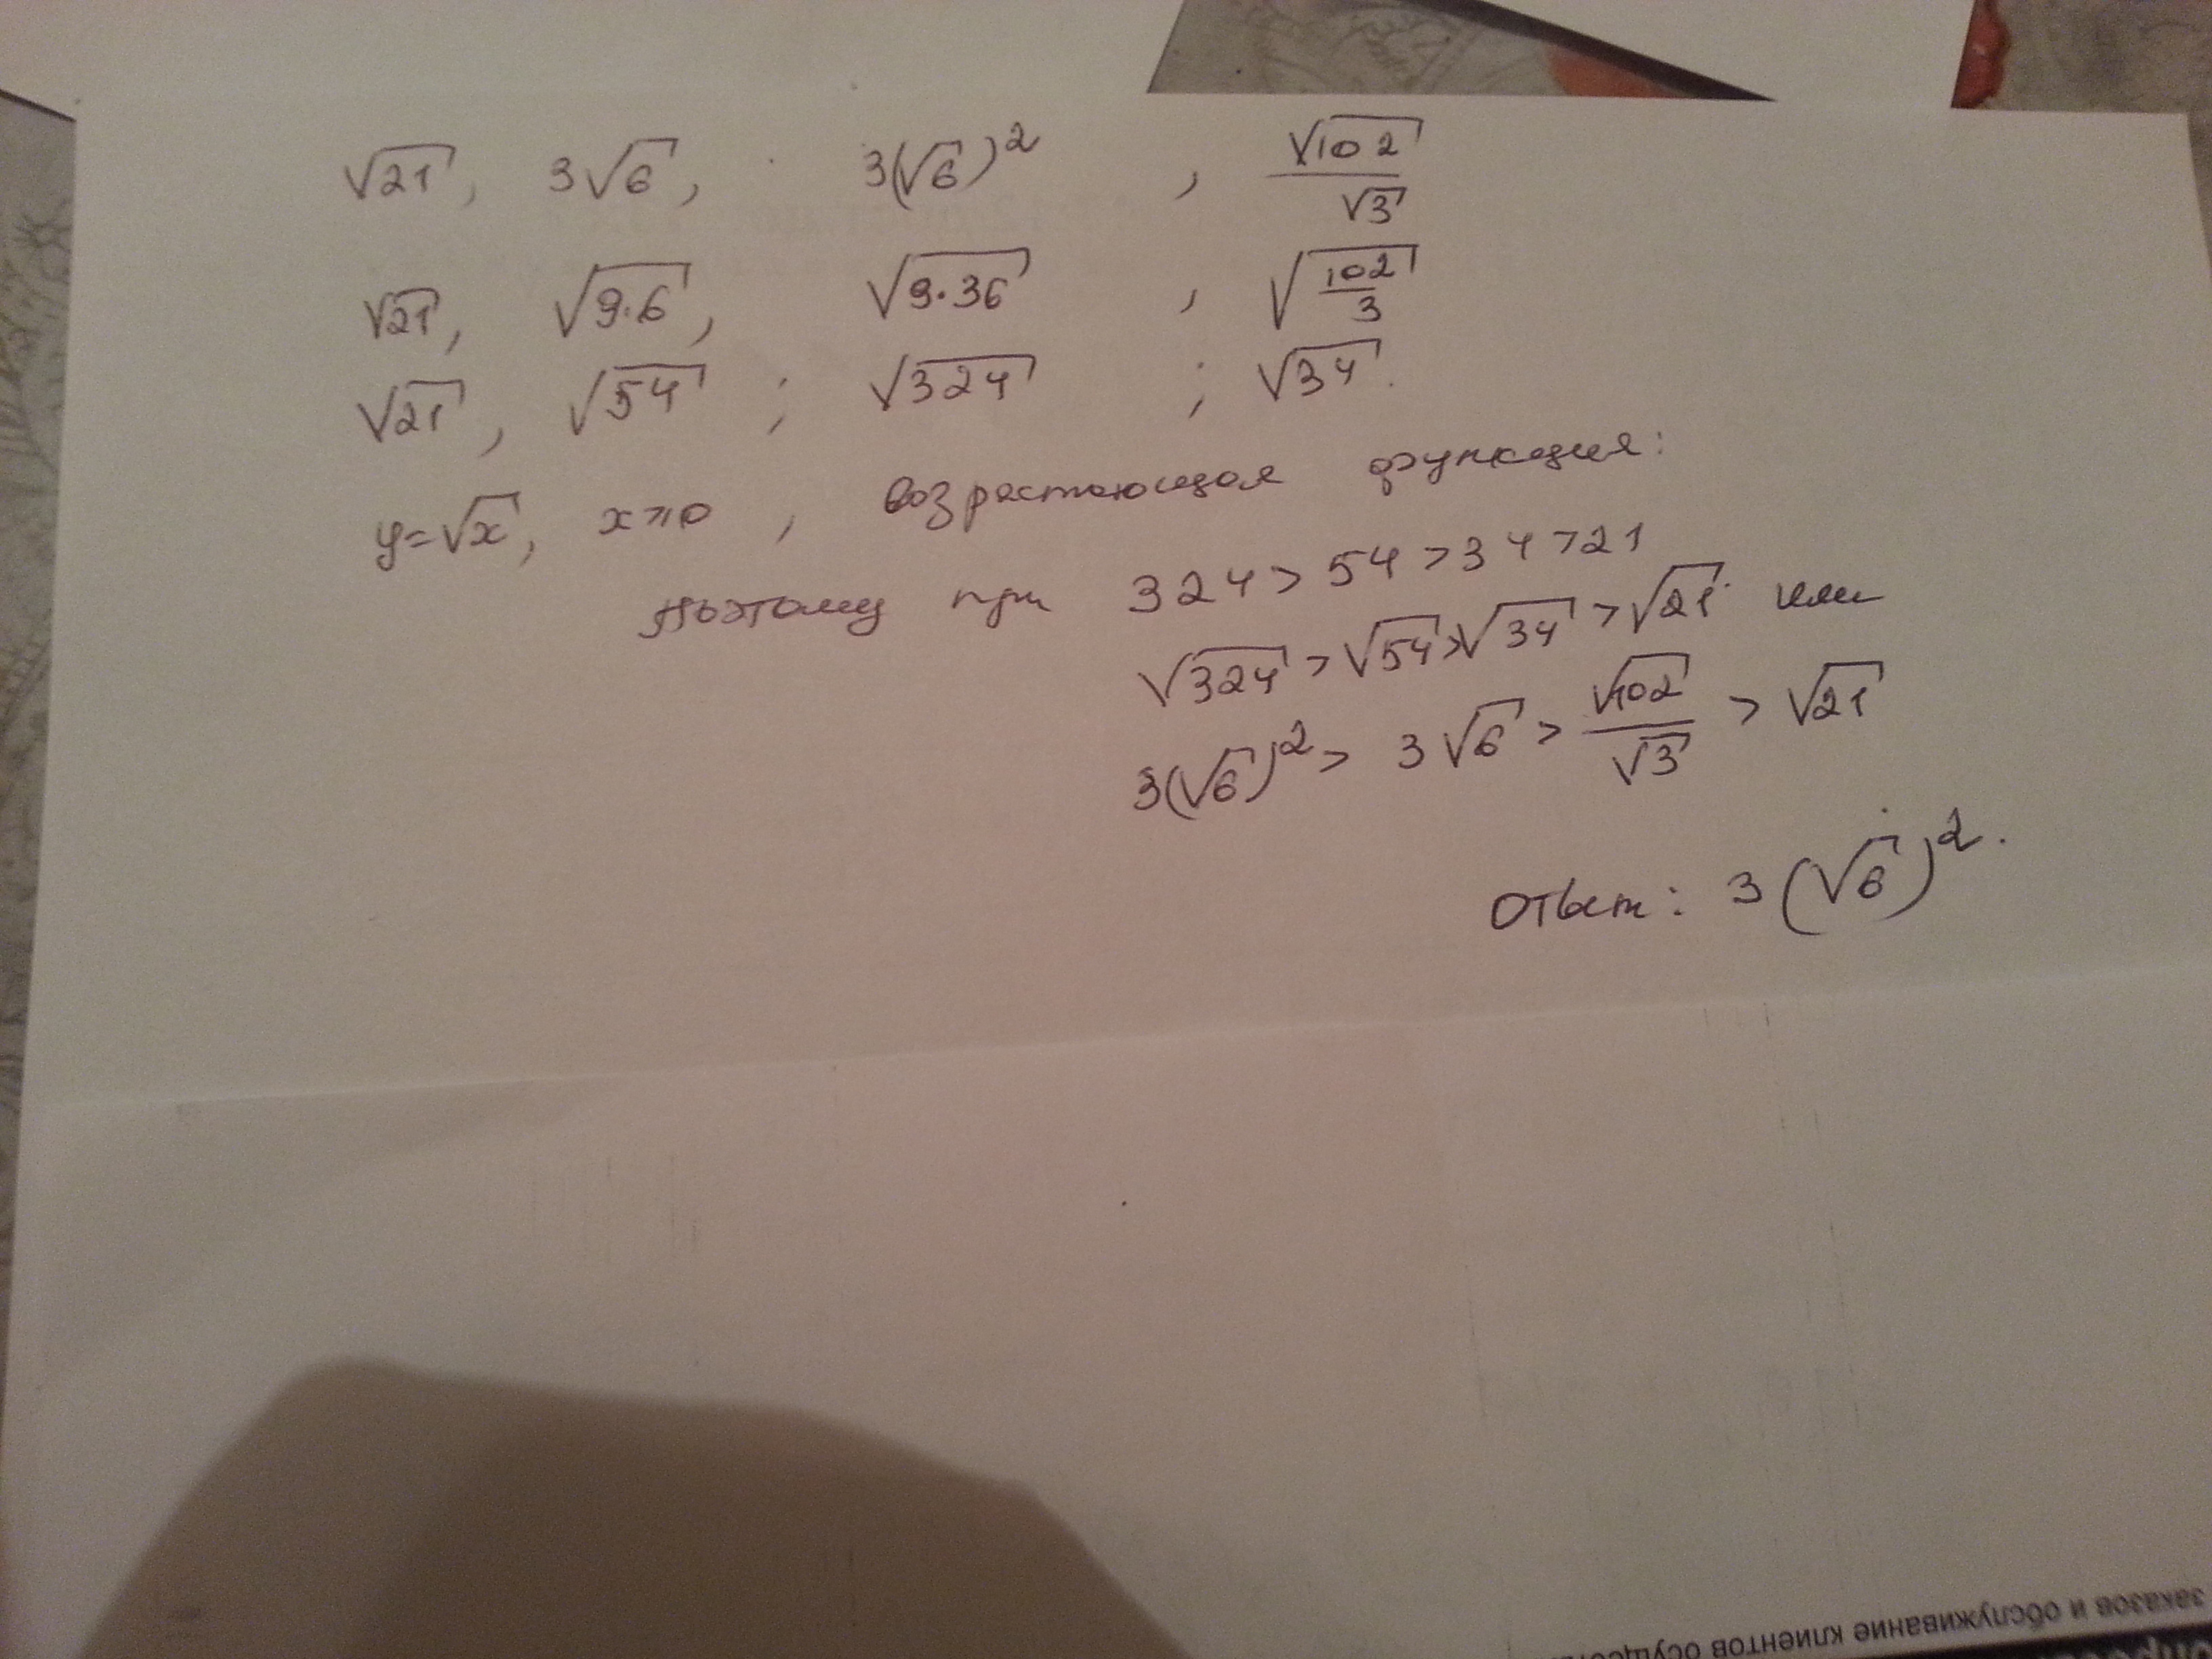 √21, 3√6, 3(√6)², √102/√3
√21, √9·6, √9·36, √102/3
√21, √54; √324; √34.
y=√x, x≥0, возрастающая функция:
поэтому при 324>54>34>21
√324>√54>√34>√21 или
3(√6)²>3√6>√102/√3>√21
Ответ: 3(√6)².
заказов и обслуживание клиентов осущест